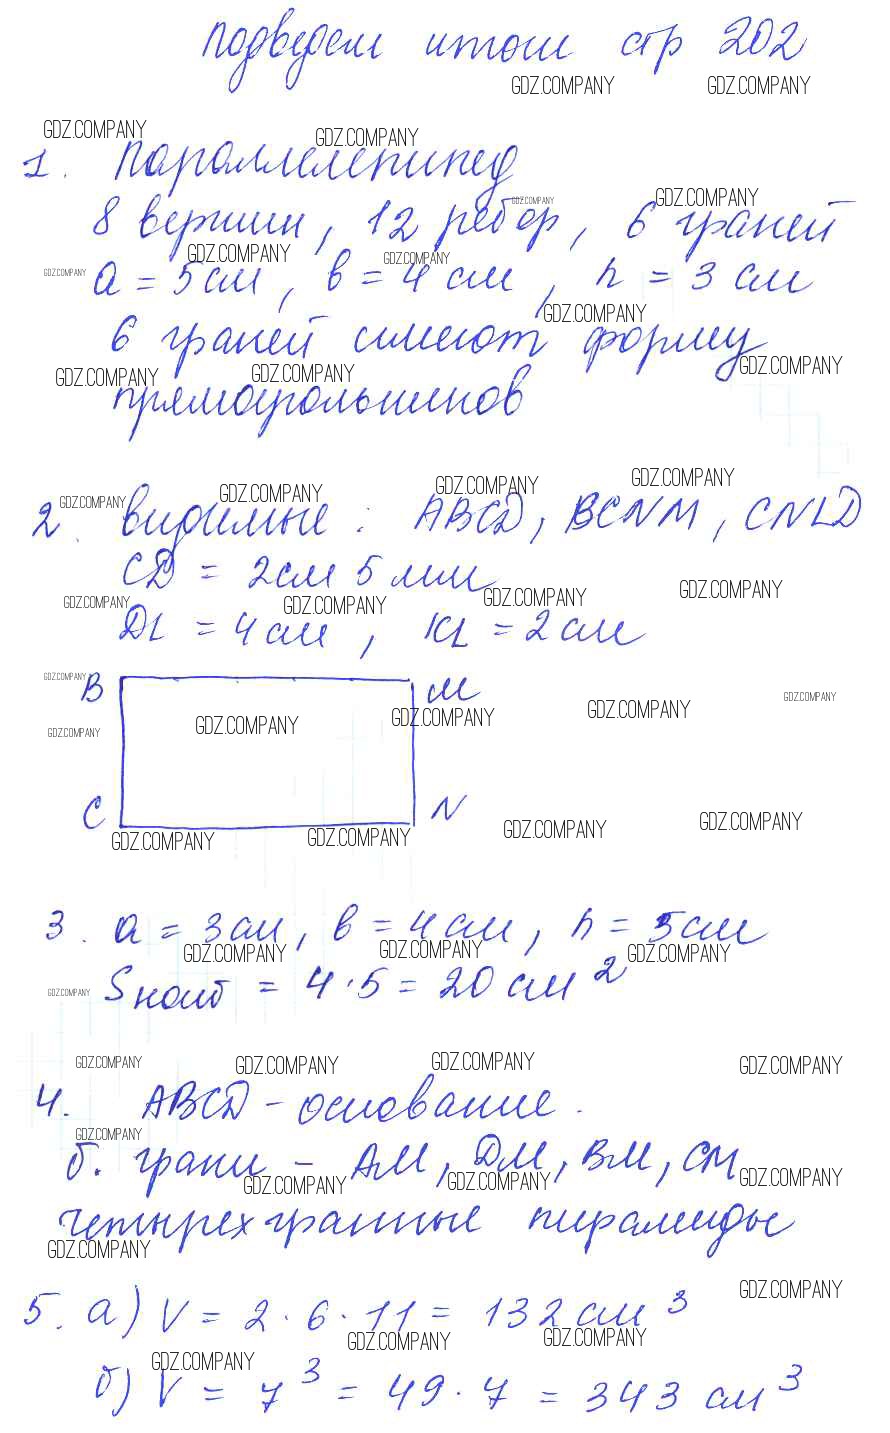 Подведем итоги стр 202
1. Параллелепипед
8 вершин, 12 ребер, 6 граней
а = 5 см, в = 4 см, h = 3 см
6 граней имеют форму
прямоугольников
2. видимые: ABCD, BCNM, CNLD
CD = 2см 5 мм
DL = 4 см, KL = 2 см
B M
C N
3. а = 3 см, в = 4 см, h = 5 см
Sнаиб = 4 · 5 = 20 см²
4. ABCD - основание.
б. грани - AM, DM, BM, CM
четырехгранные пирамиды
5. а) V = 2 · 6 · 11 = 132 см³
б) V = 7³ = 49 · 7 = 343 см³
GDZ.COMPANY